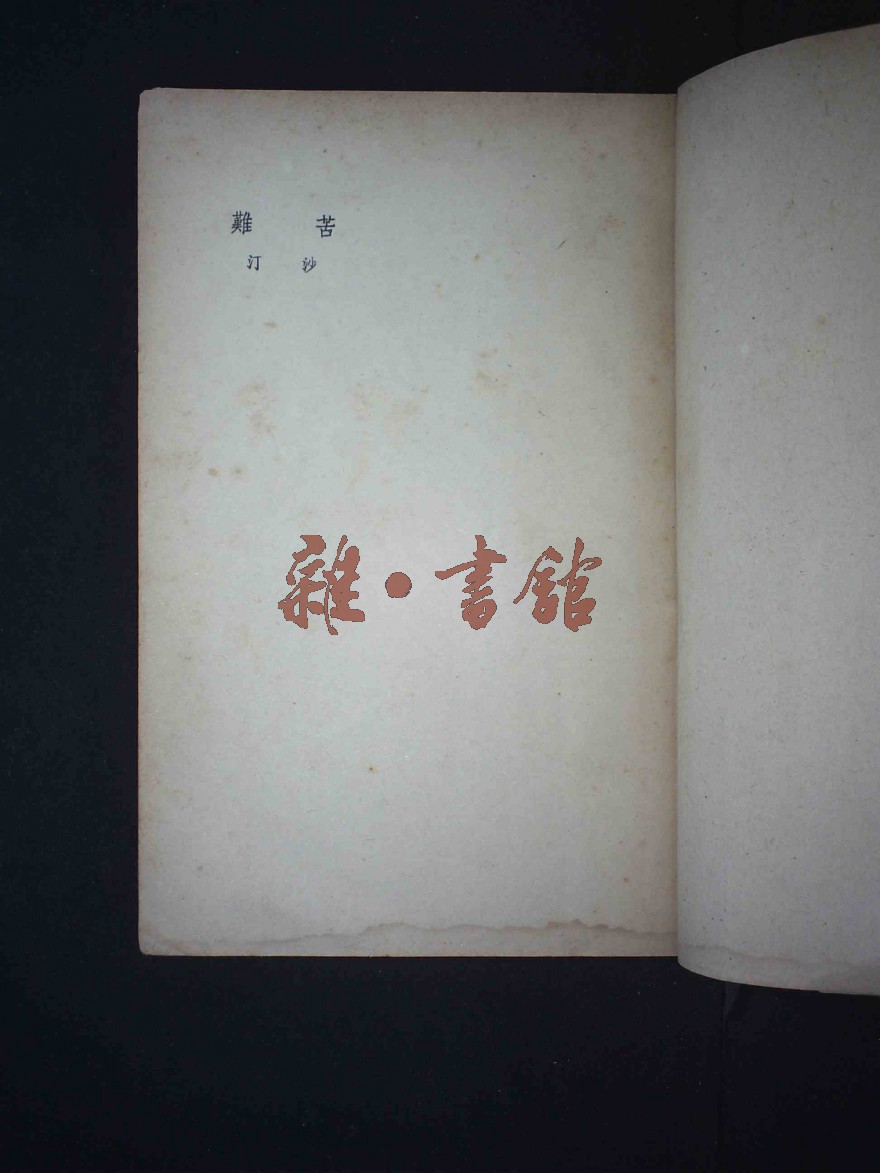 苦難
沙汀
雜·書館